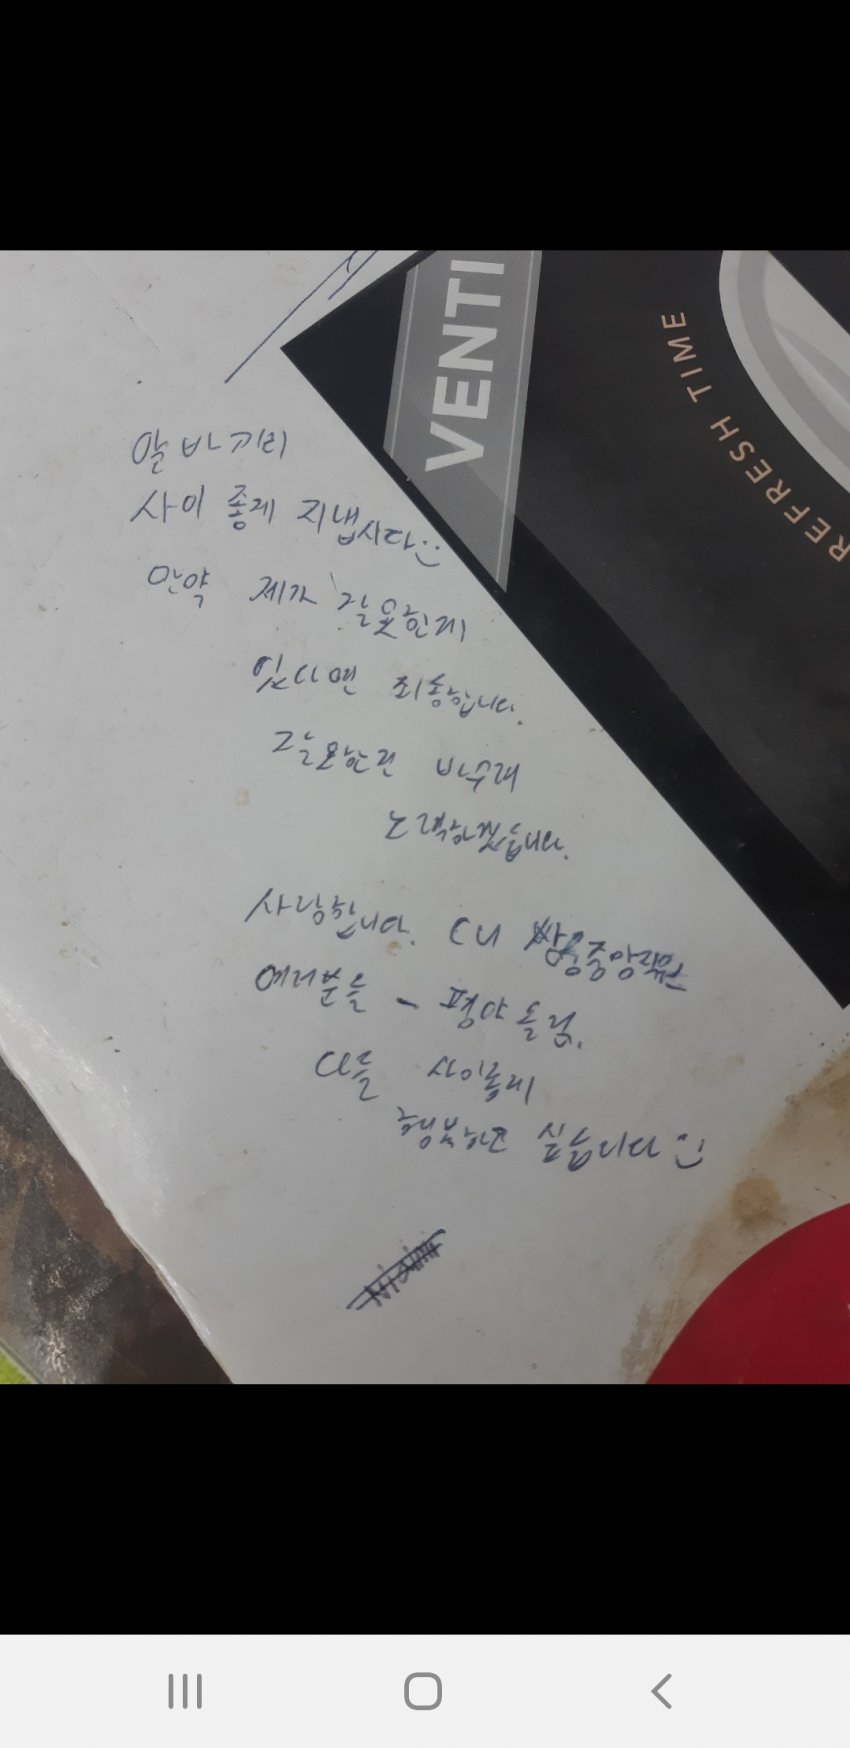 VENTI
REFRESH TIME
알바끼리
사이 좋게 지냅시다:)
만약 제가 잘못한게
있다면 죄송합니다.
잘못한건 바수려
노력하겠습니다.
사랑합니다. CU 쌍용중앙직원
여러분들 - 평야 올림.
다들 사이좋게
행복하고 싶습니다 :)